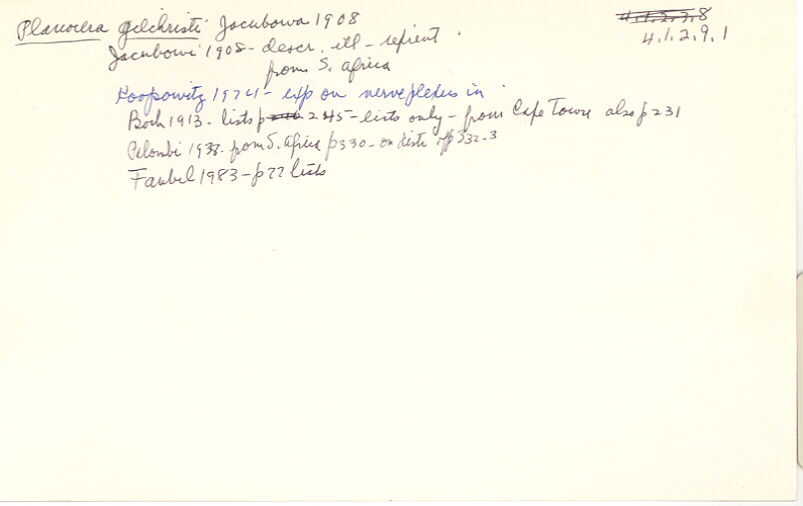 Planocera gilchristi Jacubowa 1908
4.1.2.7.8
4.1.2.9.1
Jacubowi 1908 - descr. ill - reprint
from S. Africa
Koopowitz 1974 - exp on nerve plexus in
Bock 1913 - lists p 245 - lists only - from Cape Town also p 231
Palombi 1938 - from S. Africa p 330 - on distr pp 332-3
Faubel 1983 - p 77 lists